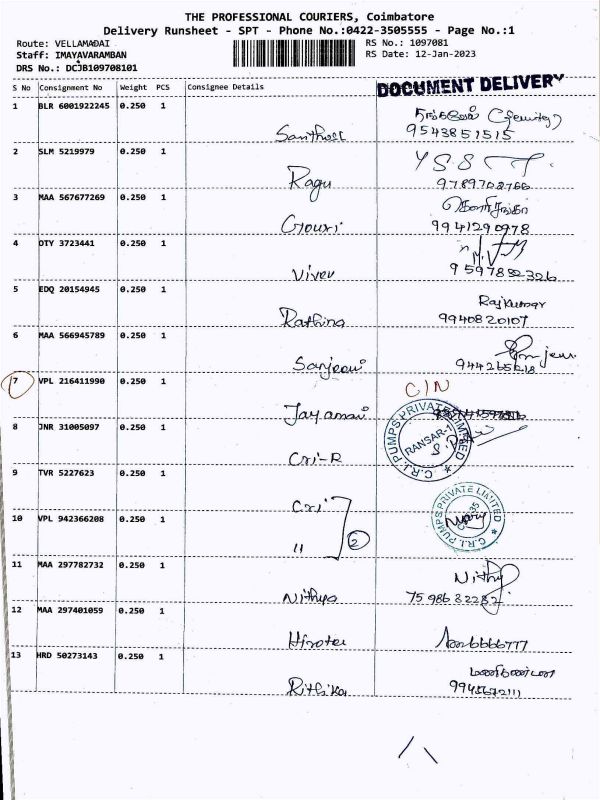 THE PROFESSIONAL COURIERS, Coimbatore
Delivery Runsheet - SPT - Phone No.:0422-3505555 - Page No.:1
Route: VELLAMADAI
Staff: IMAYAVARAMBAN
DRS No.: DCJB109708101
RS No.: 1097081
RS Date: 12-Jan-2023
S No Consignment No Weight PCS Consignee Details
DOCUMENT DELIVERY
1 BLR 6001922245 0.250 1
Santhosh
9543851515
2 SLM 5219979 0.250 1
Ragu
9789702766
3 MAA 567677269 0.250 1
Gouri
9941290978
4 OTY 3723441 0.250 1
Vivek
9597832326
5 EDQ 20154945 0.250 1
Rathina
Rajkumar
9940820107
6 MAA 566945789 0.250 1
Sanjeevi
7 VPL 216411990 0.250 1
C/N
8 JNR 31005097 0.250 1
Cri-R
C.R.I. PUMPS PRIVATE LIMITED
RANSAR-1
9 TVR 5227623 0.250 1
Cri
C.R.I. PUMPS PRIVATE LIMITED
10 VPL 942366208 0.250 1
11
2
11 MAA 297782732 0.250 1
Nithya
Nithy
7598632232
12 MAA 297401059 0.250 1
13 HRD 50273143 0.250 1
Rithika